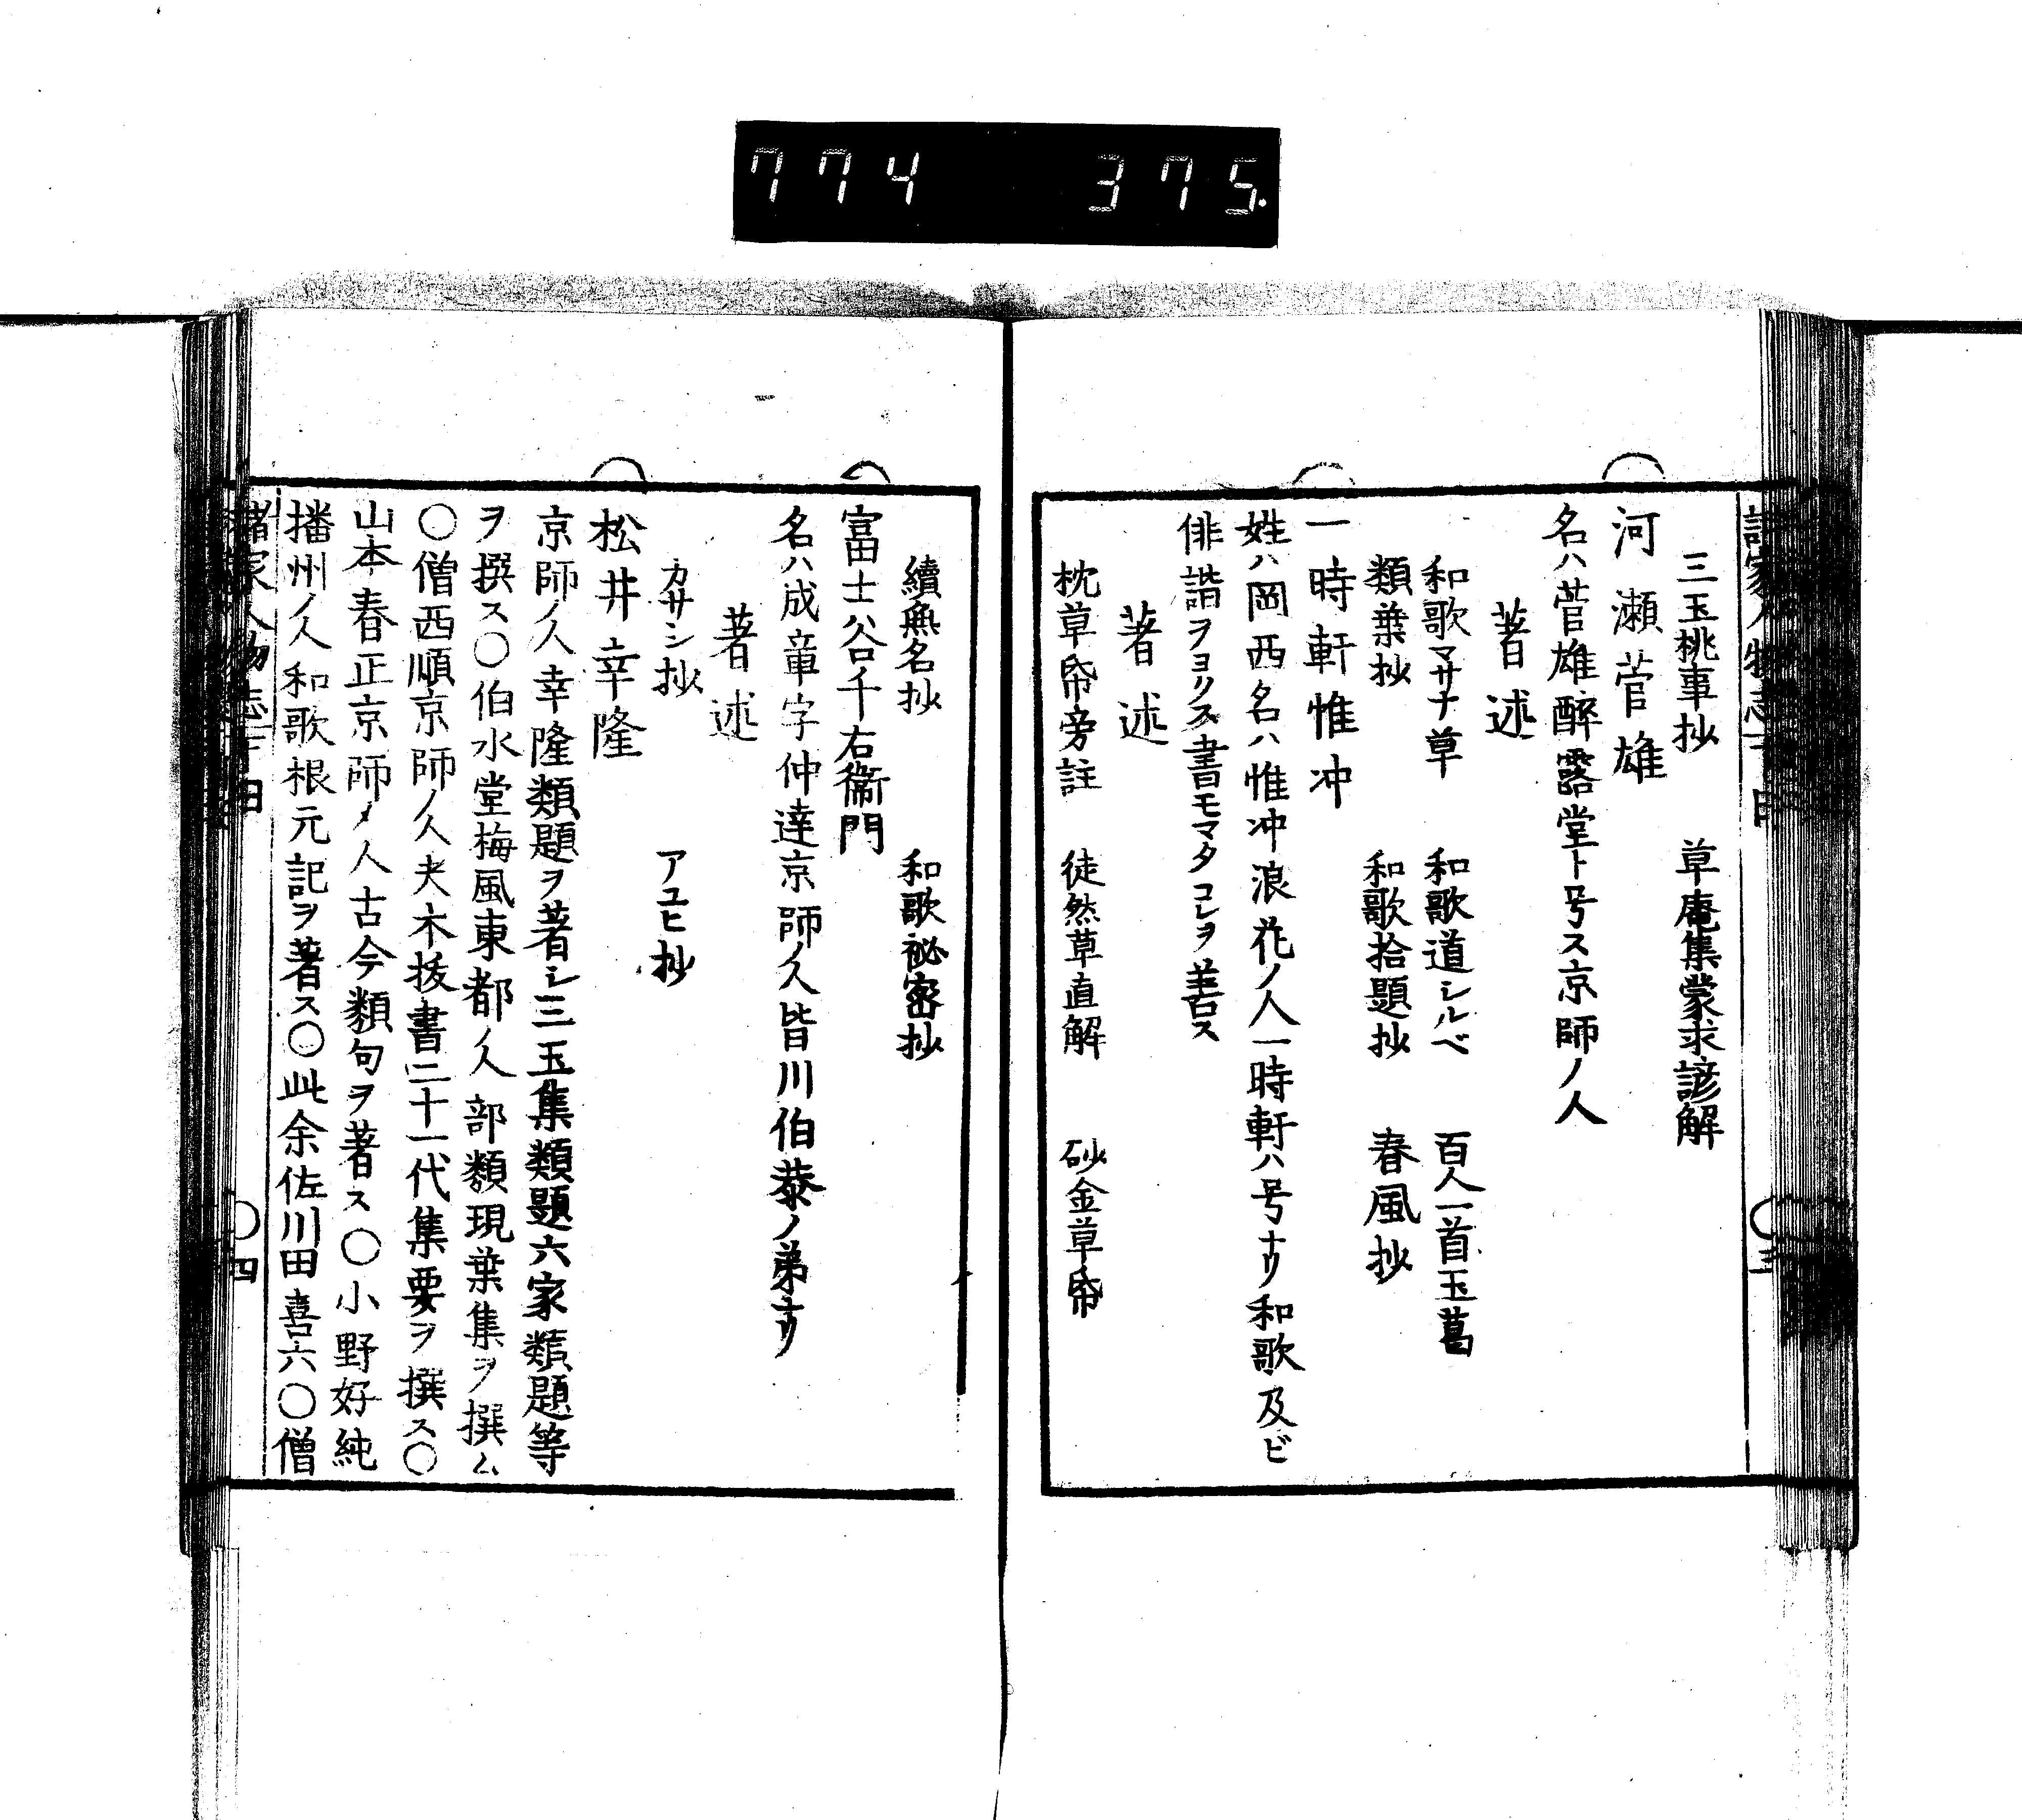 774 375.
三玉桃事抄 草庵集蒙求諺解
河瀬菅雄
名ハ菅雄醉露堂ト号ス京師ノ人
著述
和歌マサナ草 和歌道シルベ 百人一首玉葛
類葉抄 和歌拾題抄 春風抄
一時軒惟冲
姓ハ岡西名ハ惟冲浪花ノ人一時軒ハ号ナリ和歌及ビ
俳諧ヲヨクス書モマタコレヲ善ス
著述
枕草帋旁註 徒然草直解 砂金草帋
續無名抄 和歌祕密抄
富士谷千右衞門
名ハ成章字仲達京師ノ人皆川伯恭ノ弟ナリ
著述
カサシ抄 アユヒ抄
松井幸隆
京師ノ人幸隆類題ヲ著シ三玉集類題六家類題等
ヲ撰ス〇伯水堂梅風東都ノ人部類現葉集ヲ撰ム
〇僧西順京師ノ人夫木抜書二十一代集要ヲ撰ス〇
山本春正京師ノ人古今類句ヲ著ス〇小野好純
播州ノ人和歌根元記ヲ著ス〇此余佐川田喜六〇僧
諸家人物志 〇四